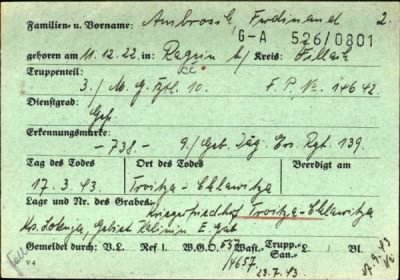 Familien- u. Vorname: Ambrosch Ferdinand 2.
G-A 526/0801
geboren am 11.12.22 in: b/ Kreis: Villach
Truppenteil: 3./ M.G. Btl. 10. F.P. Nr. 14642
Dienstgrad: Gefr.
Erkennungsmarke: -738.- 9./ Geb. Jäg. Ers. Rgt. 139.
Tag des Todes Ort des Todes Beerdigt am
17.3.43. Troitza-Chlawitza
Lage und Nr. des Grabes: Kriegerfriedhof Troitza-Chlawitza
Gebiet Kalinin E. Grab
Gemeldet durch: V.L. Ref L. W.G.O. 557 Wast.- Trupp.- San./ L./ Bl.
14657 23.7.43.
V 4